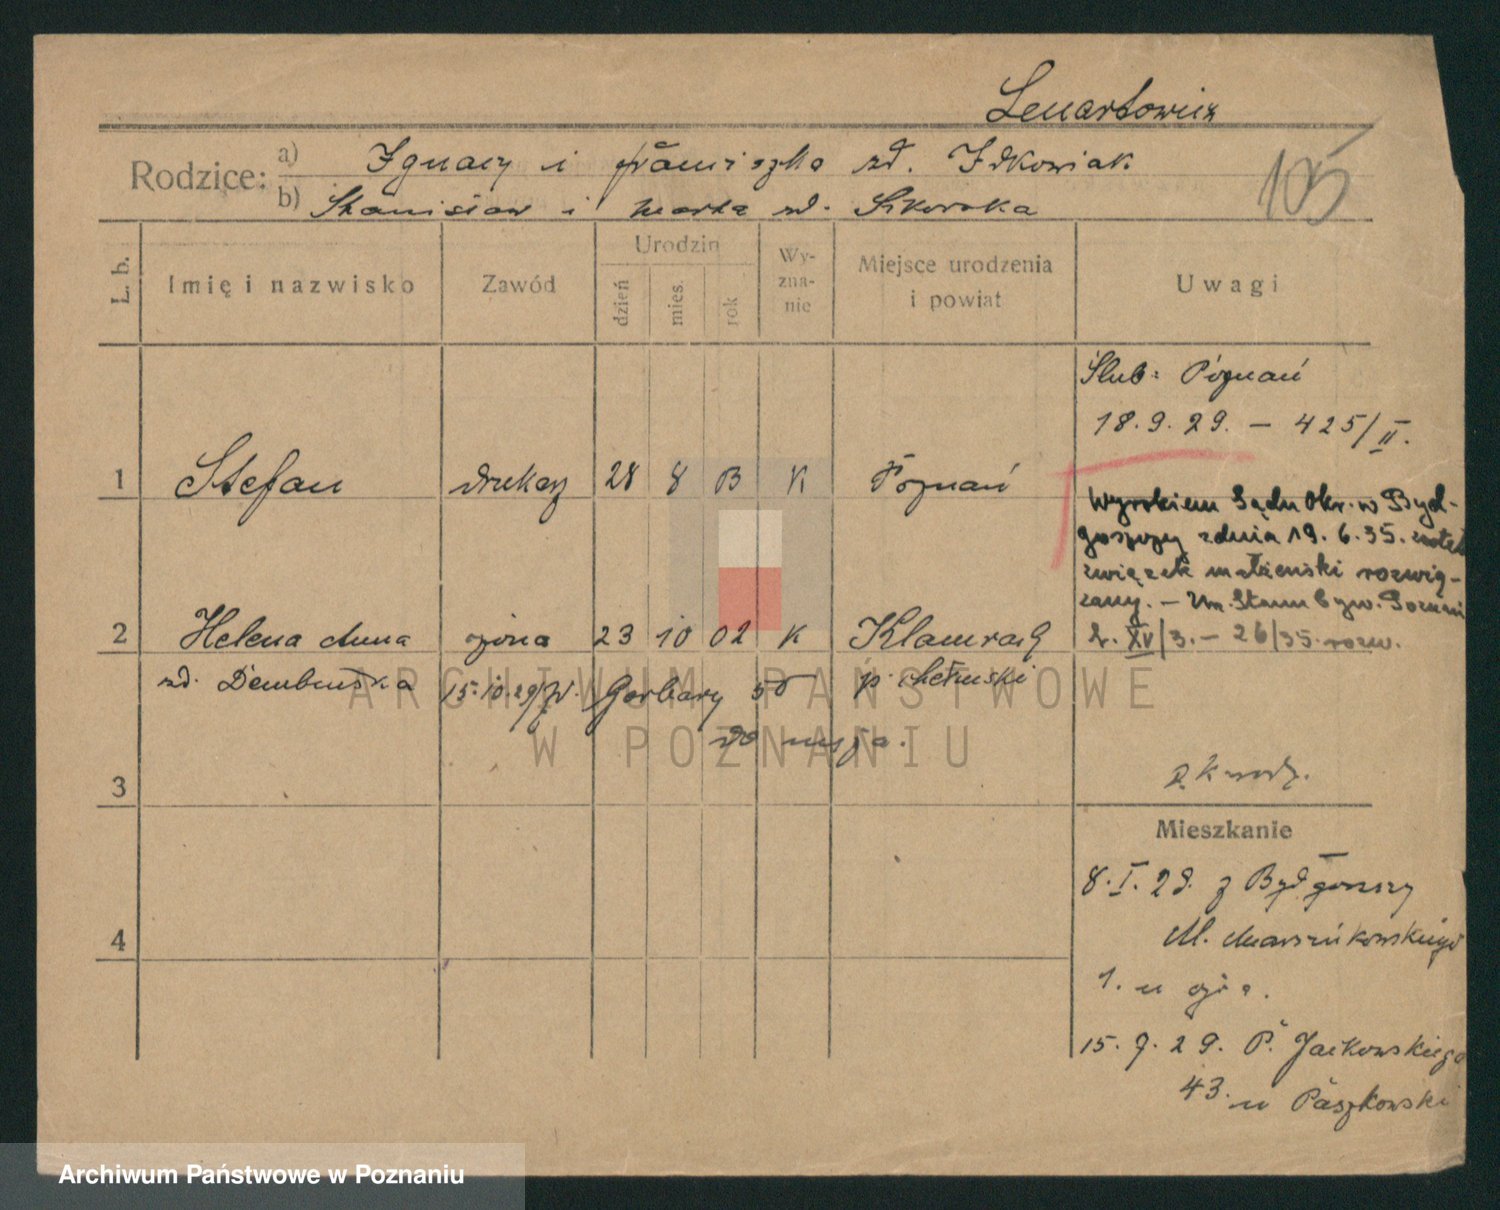 Lenartowicz
Rodzice: a) Ignacy i Franciszka zd. Idkowiak
b) Stanisław i Marta zd. Sikorska
105
L. b.
Imię i nazwisko
Zawód
Urodzin
dzień
mies.
rok
Wy-
zna-
nie
Miejsce urodzenia
i powiat
Uwagi
Ślub: Poznań
18.9.29. — 425/II.
1 Stefan drukarz 28 8 K Poznań
Wyrokiem Sądu Okr. w Byd-
goszczy z dnia 19.6.35. został
związek małżeński rozwią-
zany. — Um. Stanu Cyw. Poznań
2 Helena Anna żona 23 10 02 K
L. XV/3. — 26/35. rozw.
zd. Dembińska 15.10.29 Garbary 50 p. chełmiński
do męża.
3
Mieszkanie
8.I.29. z Bydgoszczy
M. Marcinkowskiego
4
1. u ojca.
15.9.29. P. Jackowskiego
43. u Paszkowski
ARCHIWUM PAŃSTWOWE
W POZNANIU
Archiwum Państwowe w Poznaniu